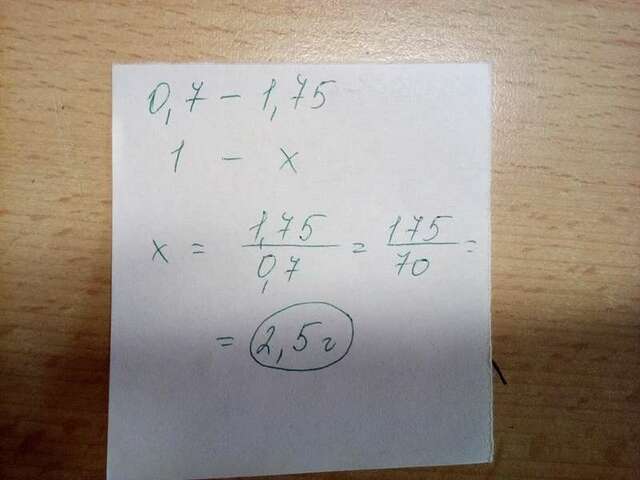 0,7 – 1,75
1 – x
x = 1,75/0,7 = 175/70 =
= 2,5 г